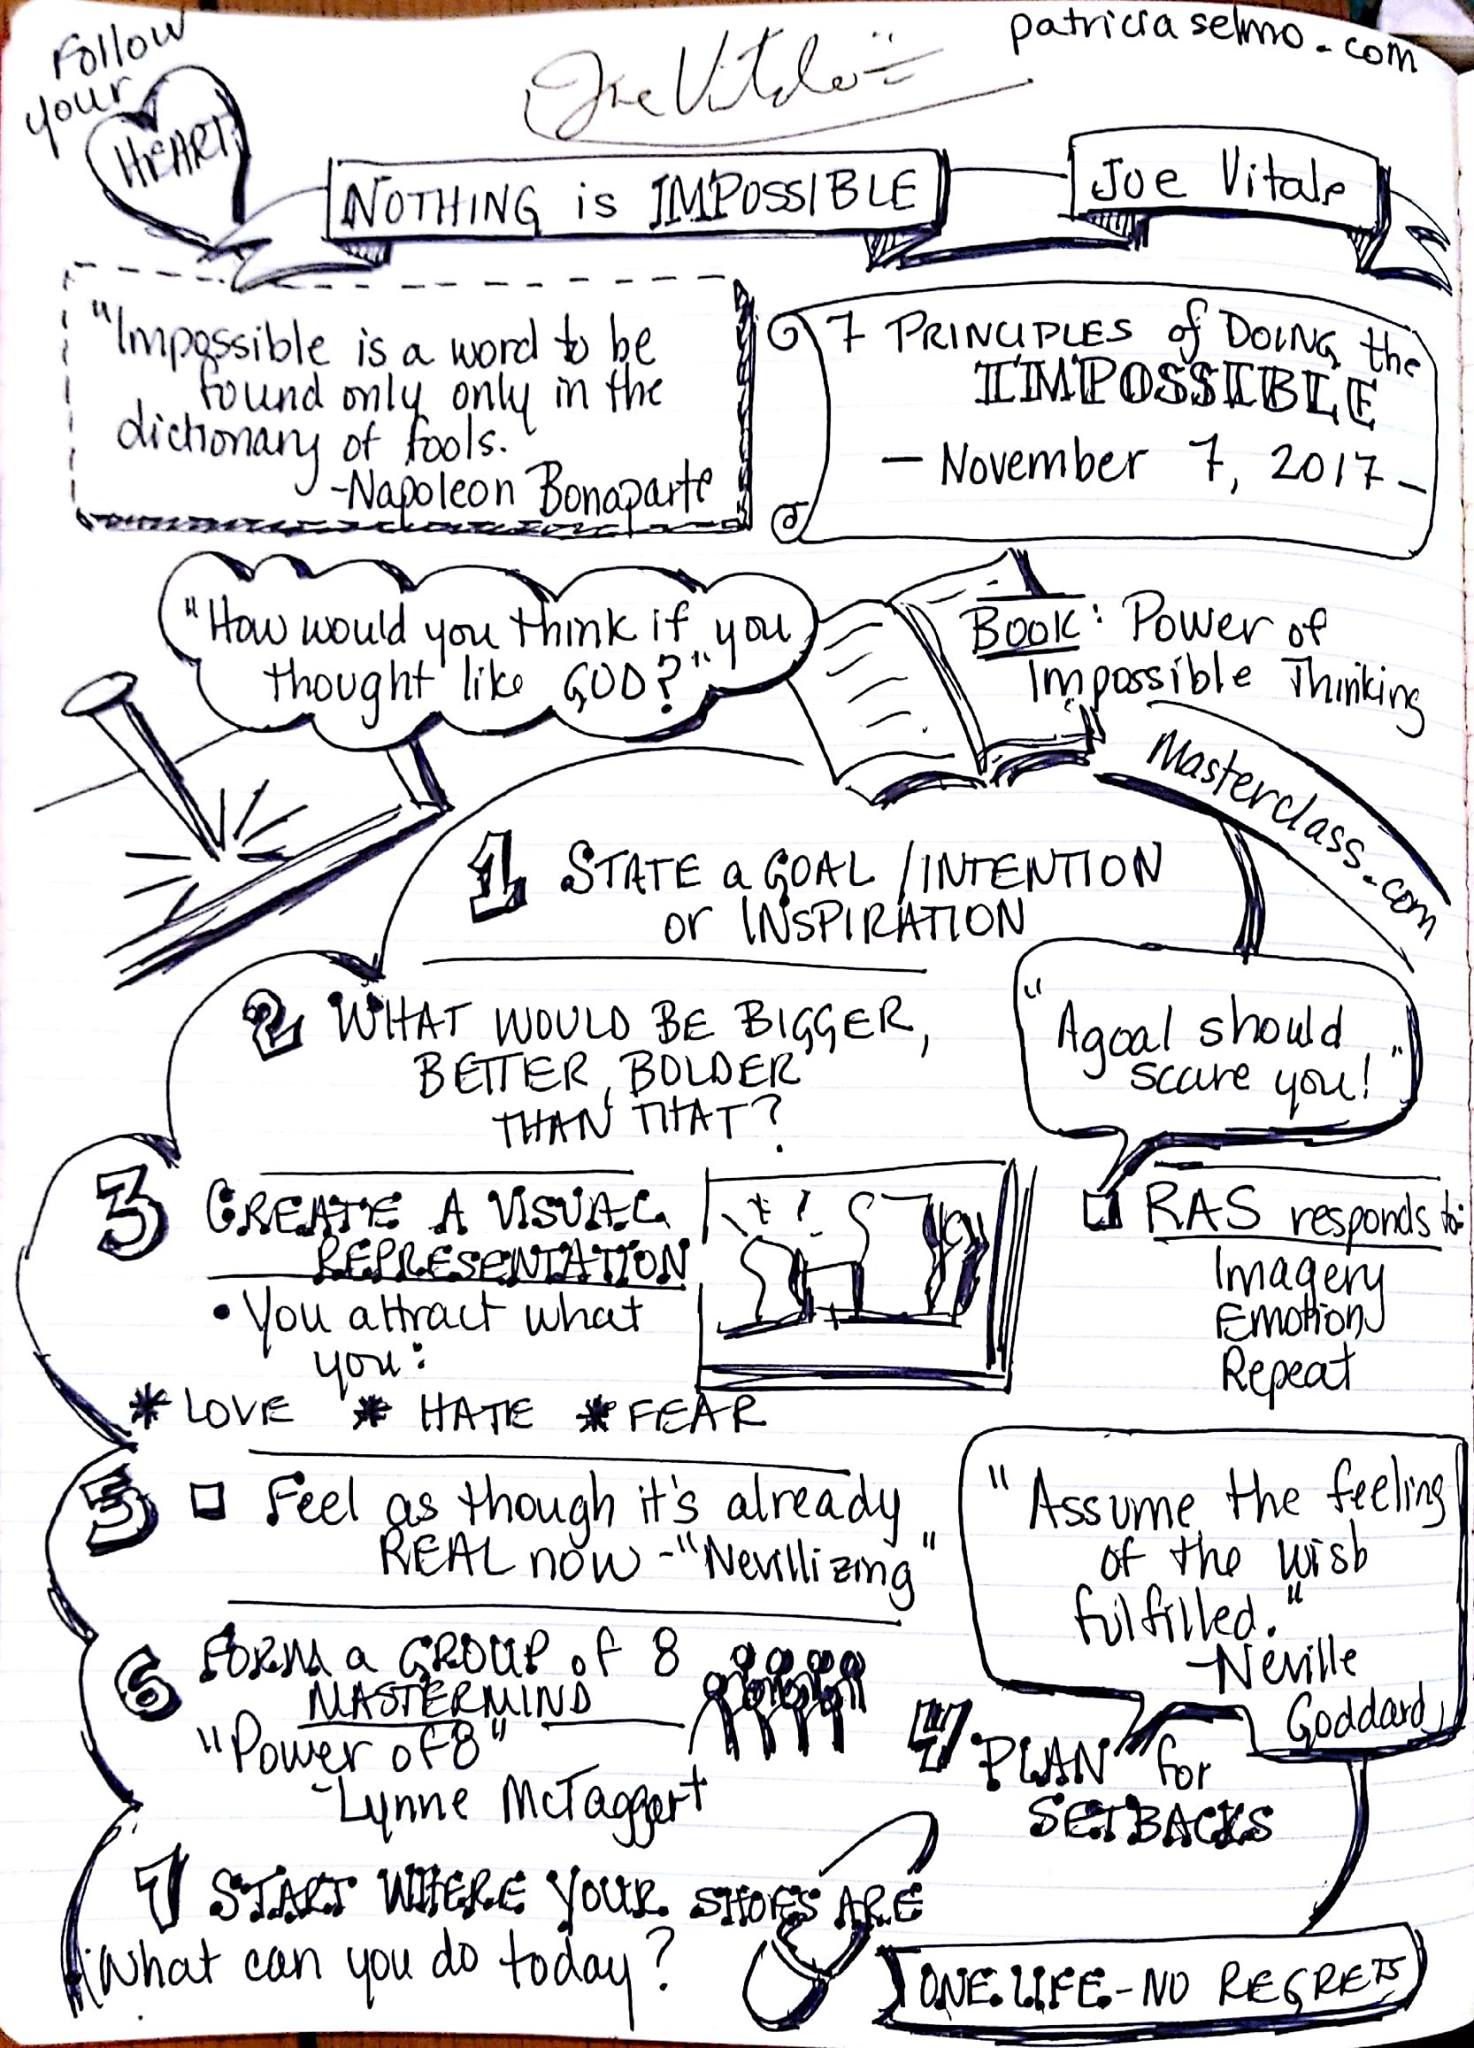 Follow
your
HEART
Joe Vitale
patriciaselmo.com
NOTHING is IMPOSSIBLE
Joe Vitale
"Impossible is a word to be
found only only in the
dictionary of fools.
-Napoleon Bonaparte
7 PRINCIPLES of DOING the
IMPOSSIBLE
- November 7, 2017 -
"How would you think if you
thought like GOD?"
Book: Power of
Impossible Thinking
Masterclass.com
1 STATE a GOAL / INTENTION
or INSPIRATION
2 WHAT WOULD BE BIGGER,
BETTER, BOLDER
THAN THAT?
"A goal should
scare you!"
3 CREATE A VISUAL
REPRESENTATION
• You attract what
you:
* LOVE * HATE * FEAR
RAS responds to:
Imagery
Emotion
Repeat
5 Feel as though it's already
REAL now - "Nevillizing"
"Assume the feeling
of the wish
fulfilled."
-Neville
Goddard
6 FORM a GROUP of 8
MASTERMIND
"Power of 8"
-Lynne McTaggart
4 PLAN for
SETBACKS
7 START WHERE YOUR SHOES ARE
What can you do today?
ONE LIFE - NO REGRETS